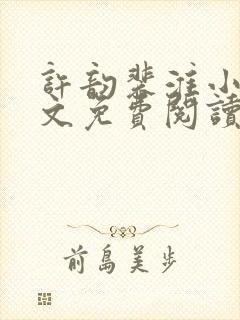 許韵裴淮小
文免費閱讀
前島美步